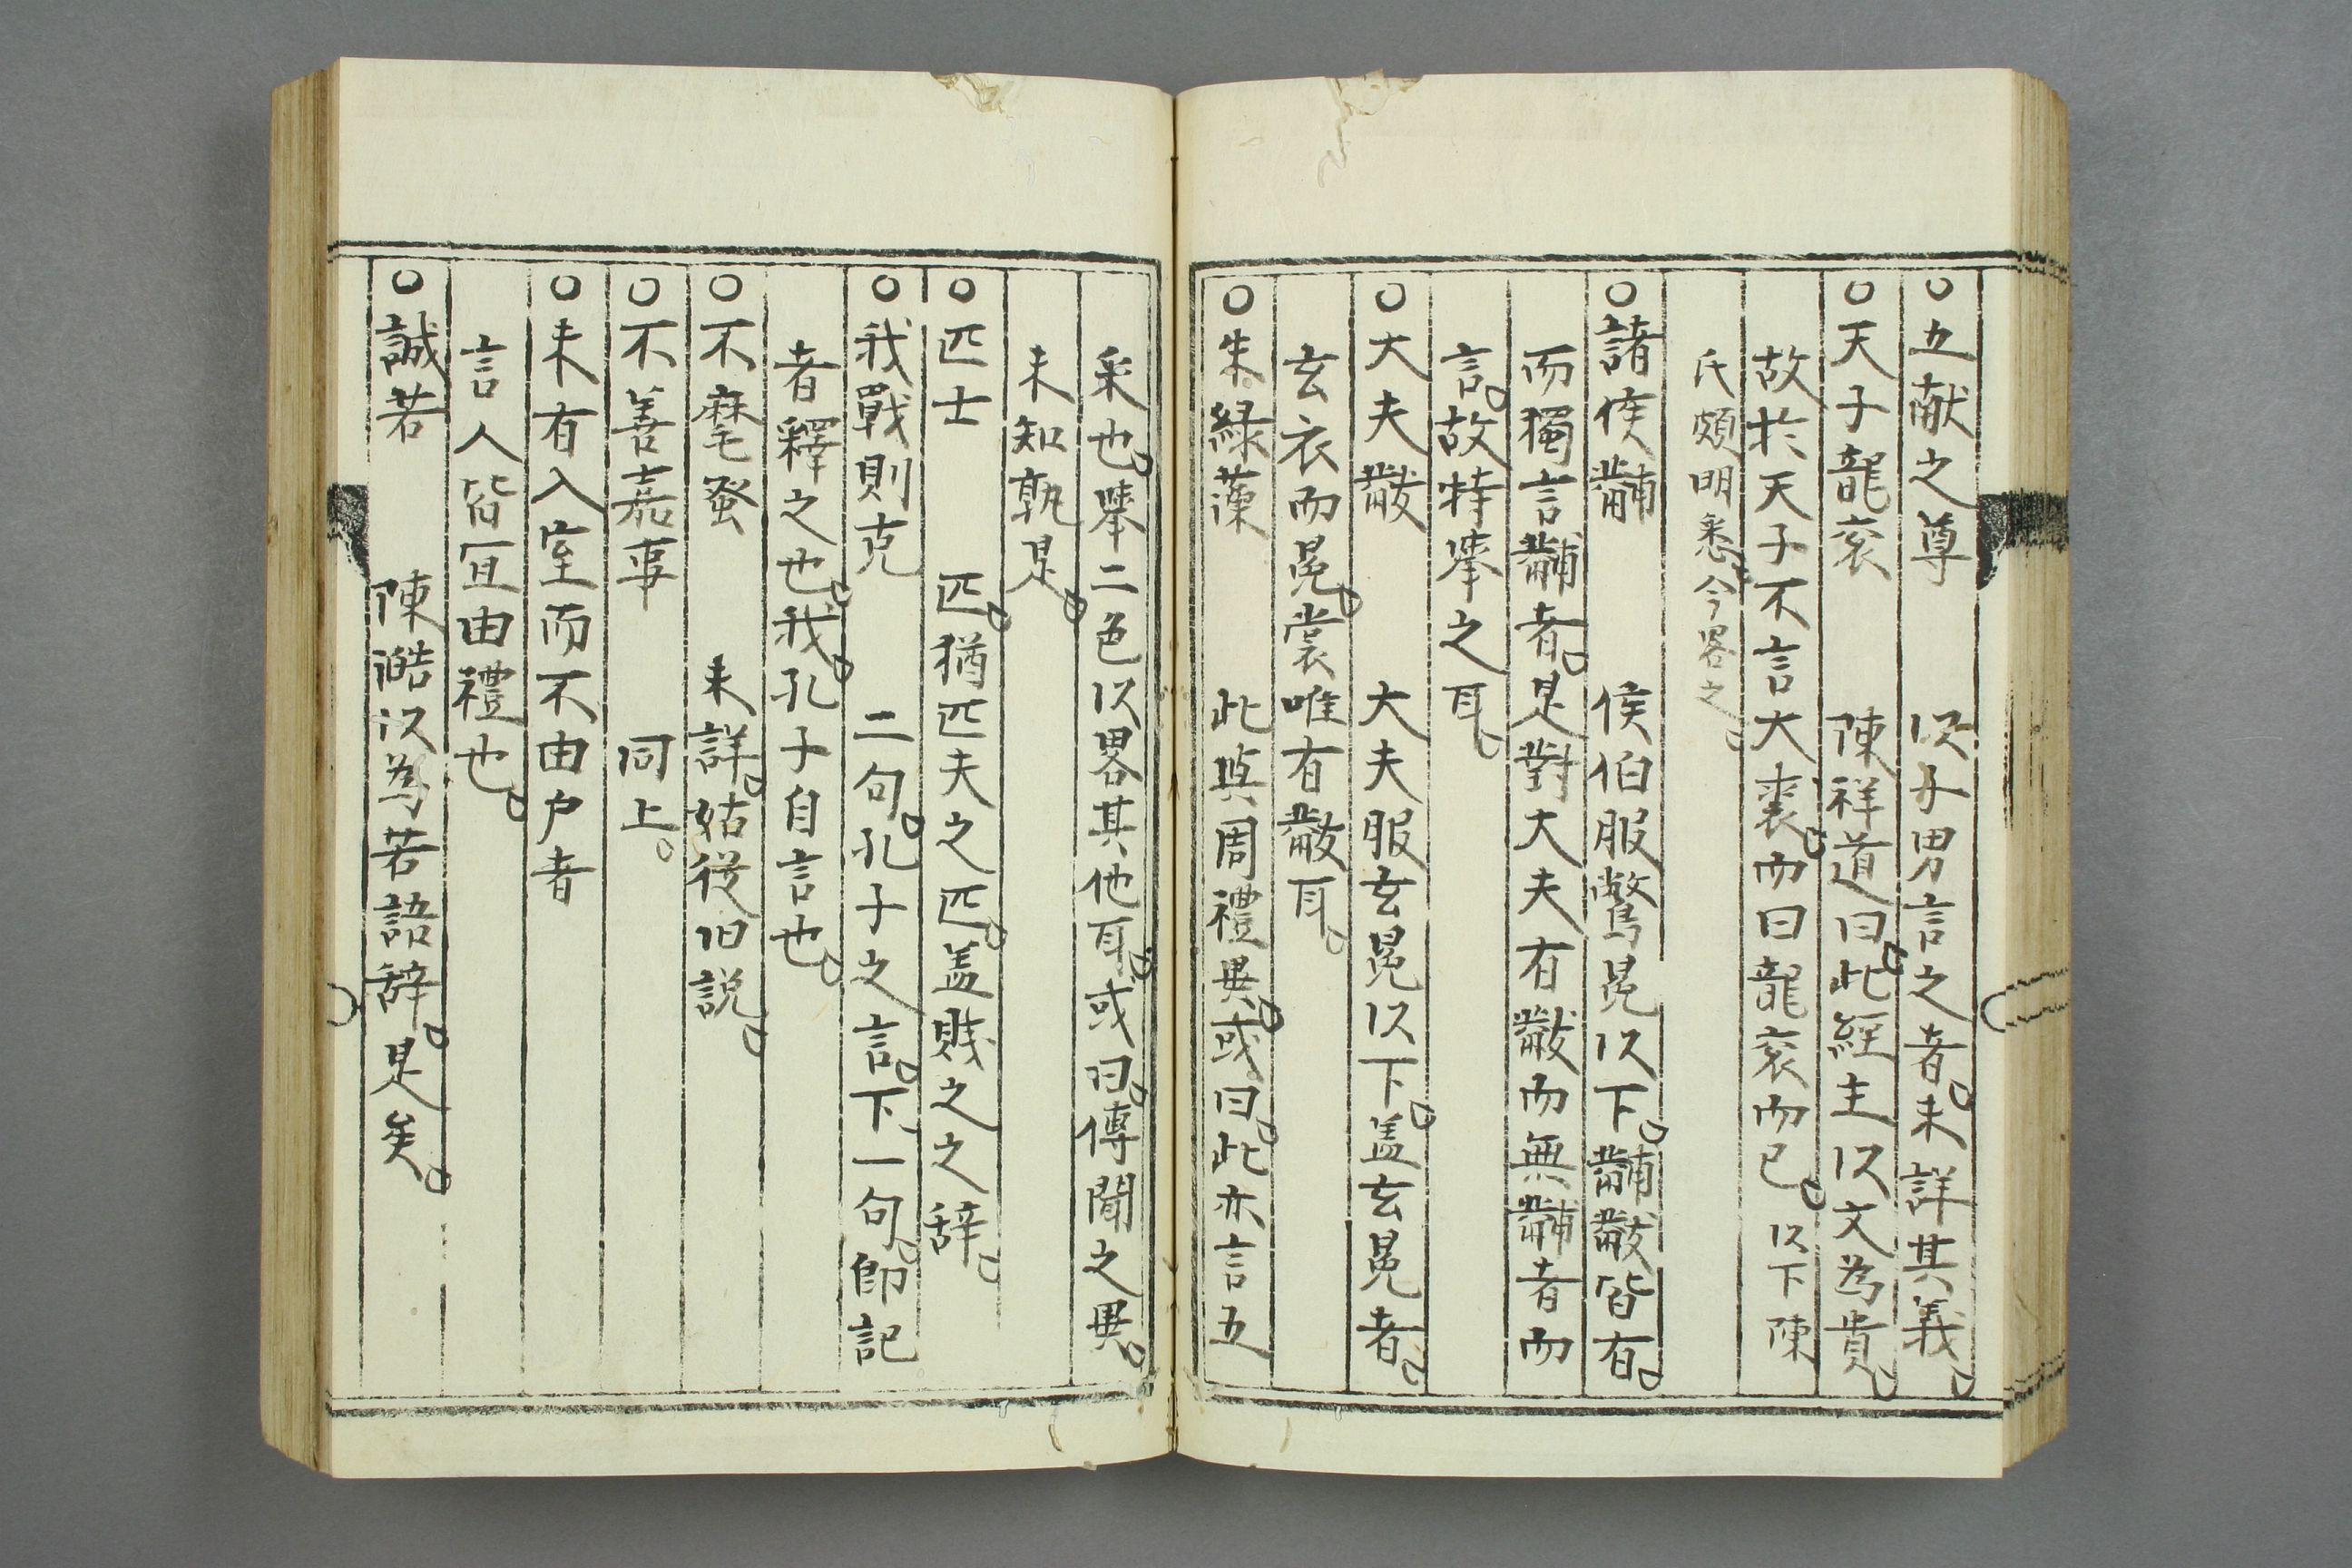 ○五献之尊　以子男言之者。未詳其義。
○天子龍衮　陳祥道曰。此經主以文為貴。
故於天子不言大裘。而曰龍衮而已。以下陳
氏頗明悉。今畧之。
○諸侯黼　侯伯服鷩冕以下。黼黻皆有。
而獨言黼者。是對大夫有黻而無黼者而
言。故特举之耳。
○大夫黻　大夫服玄冕以下。盖玄冕者。
玄衣而冕。裳唯有黻耳。
○朱緑藻　此與周禮異。或曰。此亦言五
采也。举二色以畧其他耳。或曰。傳聞之異。
未知孰是。
○匹士　匹。猶匹夫之匹。盖賤之之辞。
○我戰則克　二句。孔子之言。下一句。即記
者釋之也。我。孔子自言也。
○不麾蚤　未詳。姑從旧説。
○不善嘉事　同上。
○未有入室而不由户者
言人皆宜由禮也。
○誠若　陳澔以為若語辞。是矣。